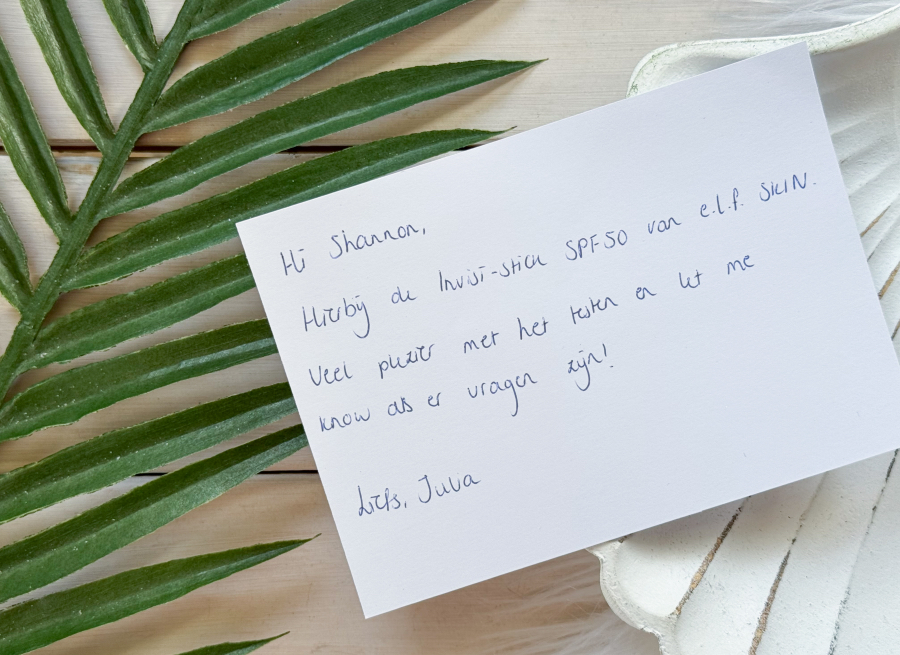 Hi Shannon,
Hierbij de Invisi-stick SPF50 van e.l.f. SKIN.
Veel plezier met het testen en let me
know als er vragen zijn!
Liefs, Julia